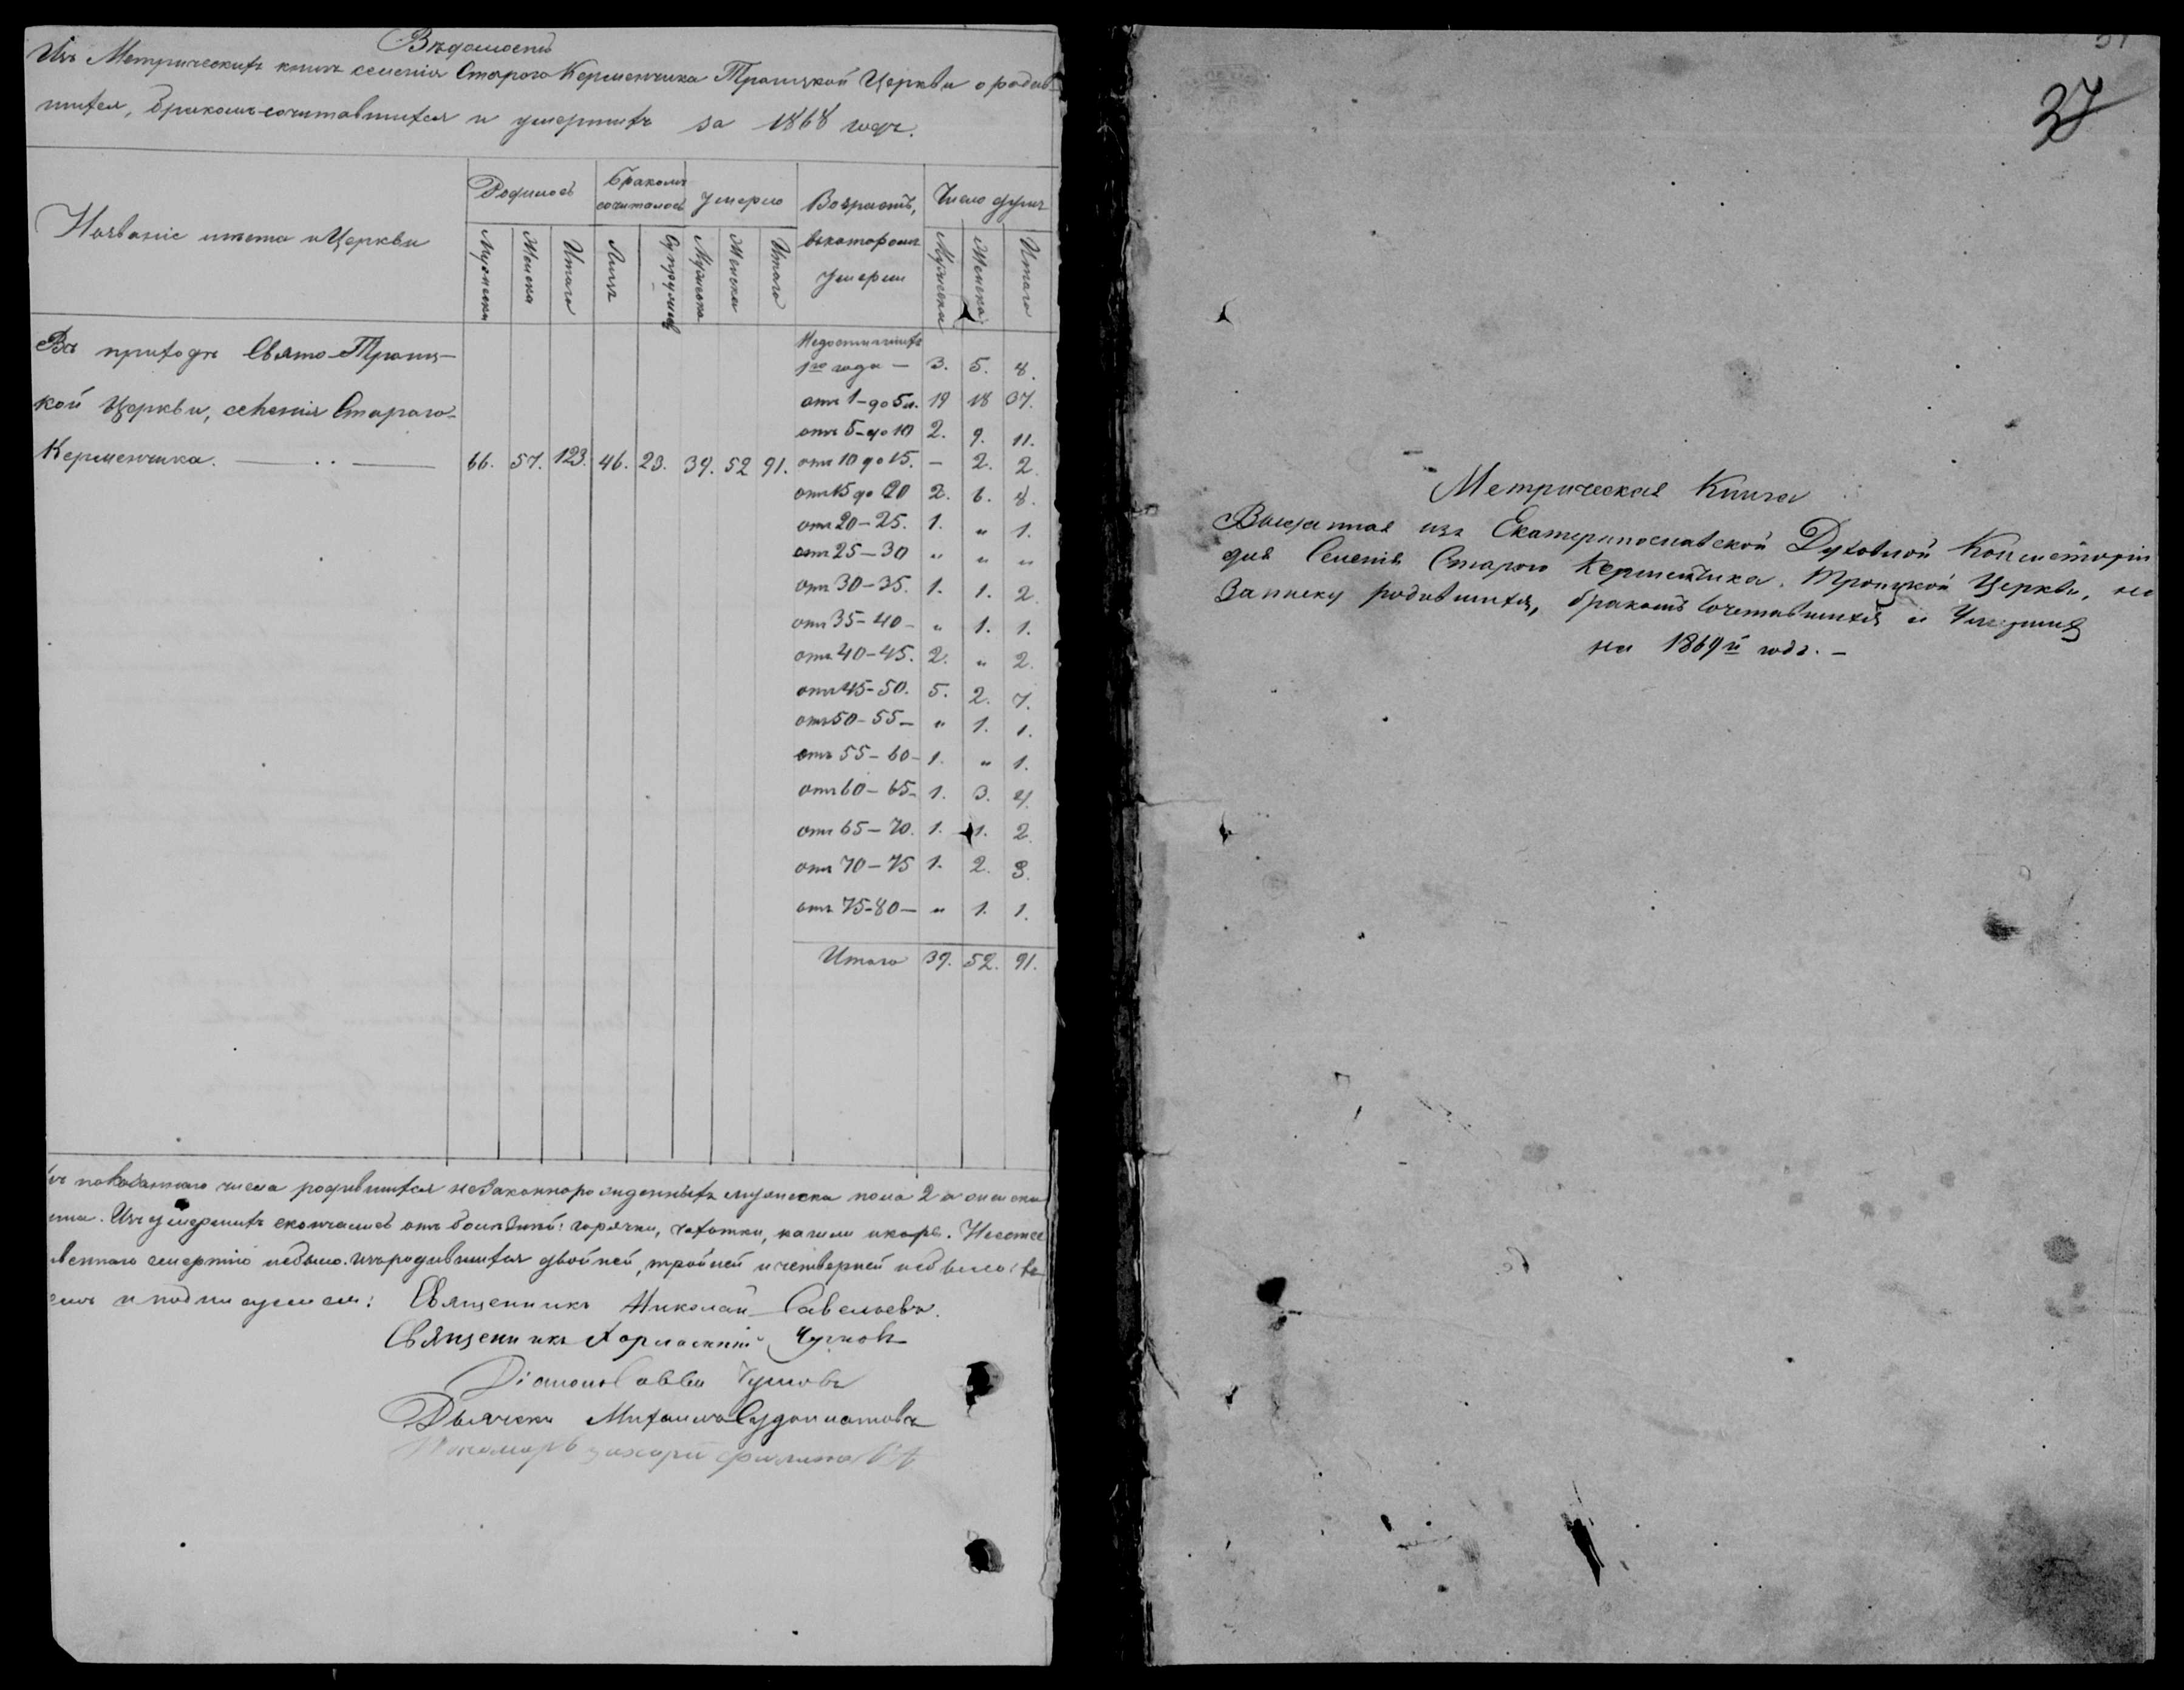 Вѣдомость
Изъ Метрическихъ книгъ селенія Стараго Керменчика Троицкой Церкви о родив-
шихся, бракомъ сочитавшихся и умершихъ за 1868 годъ.
Названіе мѣста и Церкви
Родилось
Бракомъ сочиталось
Умерло
Возрастъ, въ которомъ умерли
Число душъ
Мужеска Женска Итого Лицъ Супружествъ Мужеска Женска Итого Мужеска Женска Итого
Въ приходѣ Свято-Троиц-
кой Церкви, селенія Стараго-
Керменчика. 66. 57. 123. 46. 23. 39. 52 91.
Недостигшихъ
1го года — 3. 5. 8.
отъ 1-до 5 л. 19 18 37.
отъ 5-до 10 2. 9. 11.
отъ 10 до 15. — 2. 2.
отъ 15 до 20 2. 6. 8.
отъ 20-25. 1. „ 1.
отъ 25-30 „ „ „
отъ 30-35. 1. 1. 2
отъ 35-40- „ 1. 1.
отъ 40-45. 2. „ 2.
отъ 45-50. 5. 2. 7.
отъ 50-55- „ 1. 1.
отъ 55-60- 1. „ 1.
отъ 60-65- 1. 3. 4.
отъ 65-70. 1. 1. 2
отъ 70-75 1. 2. 3.
отъ 75-80- „ 1. 1.
Итого 39. 52. 91.
показаннаго числа родившихся незаконнорожденныхъ мужеска пола 2 а женска
Изъ умершихъ скончались отъ болезней: горячки, чахотки, кашля и корь.
смертію небыло. изъ родившихся двойней, тройней и четверней небыло:
и подписуемся: Священникъ Николай Савельевъ.
Священникъ Харлампій Чугновъ
Діаконъ Савва
Дьячекъ Михаилъ
Пономарь Захарій
37
Метрическая Книга
Выданная изъ Екатеринославской Духовной Консисторіи
для Селенія Стараго Керменчика. Троицкой Церкви, на
Записку родившихся, бракомъ Сочетавшихся и Умершихъ
на 1869й годъ. —